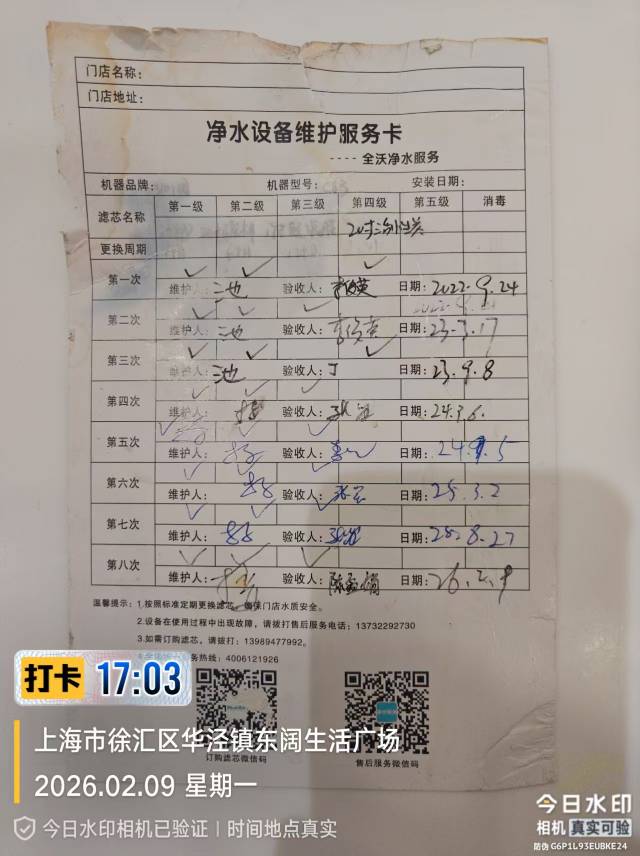 门店名称:
门店地址:
净水设备维护服务卡
----全沃净水服务
机器品牌: 机器型号: 安装日期:
滤芯名称 第一级 第二级 第三级 第四级 第五级 消毒
更换周期
第一次 ✓ ✓ ✓
维护人: 池 验收人: 日期: 2022.9.24
第二次 ✓ ✓ ✓
维护人: 池 验收人: 日期: 23.3.17
第三次 ✓ ✓ ✓
维护人: 池 验收人: 丁 日期: 23.9.8
第四次 ✓ ✓ ✓
维护人: 验收人: 日期: 24.3.6.
第五次 ✓ ✓ ✓
维护人: 验收人: 日期: 24.9.5
第六次 ✓ ✓ ✓
维护人: 验收人: 日期: 25.3.2
第七次 ✓ ✓ ✓
维护人: 验收人: 日期: 25.8.27
第八次 ✓ ✓ ✓
维护人: 验收人: 日期: 26.2.9
温馨提示: 1.按照标准定期更换滤芯, 确保门店水质安全。
2.设备在使用过程中出现故障, 请拨打售后服务电话: 13732292730
3.如需订购滤芯, 请拨打: 13989477992.
务热线: 4006121926
订购滤芯微信码
售后服务微信码
打卡 17:03
上海市徐汇区华泾镇东阔生活广场
2026.02.09 星期一
今日水印相机已验证 | 时间地点真实
今日水印
相机 真实可验
防伪 G6P1L93EUBKE24